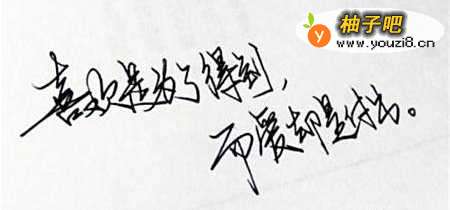 柚子吧
www.youzi8.cn
喜欢是为了得到，
而爱却是付出。